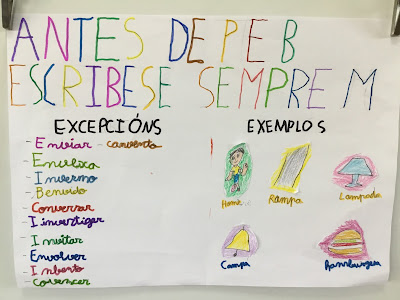 ANTES DE P E B
ESCRIBESE SEMPRE M
EXCEPCIÓNS
EXEMPLOS
- Enviar - convento
- Envexa
- Inverno
- Benvido
- Conversar
- Investigar
- Invitar
- Envolver
- Inxento
- Convencer
Home
Rampa
Lampada
Campa
Hamburguesa